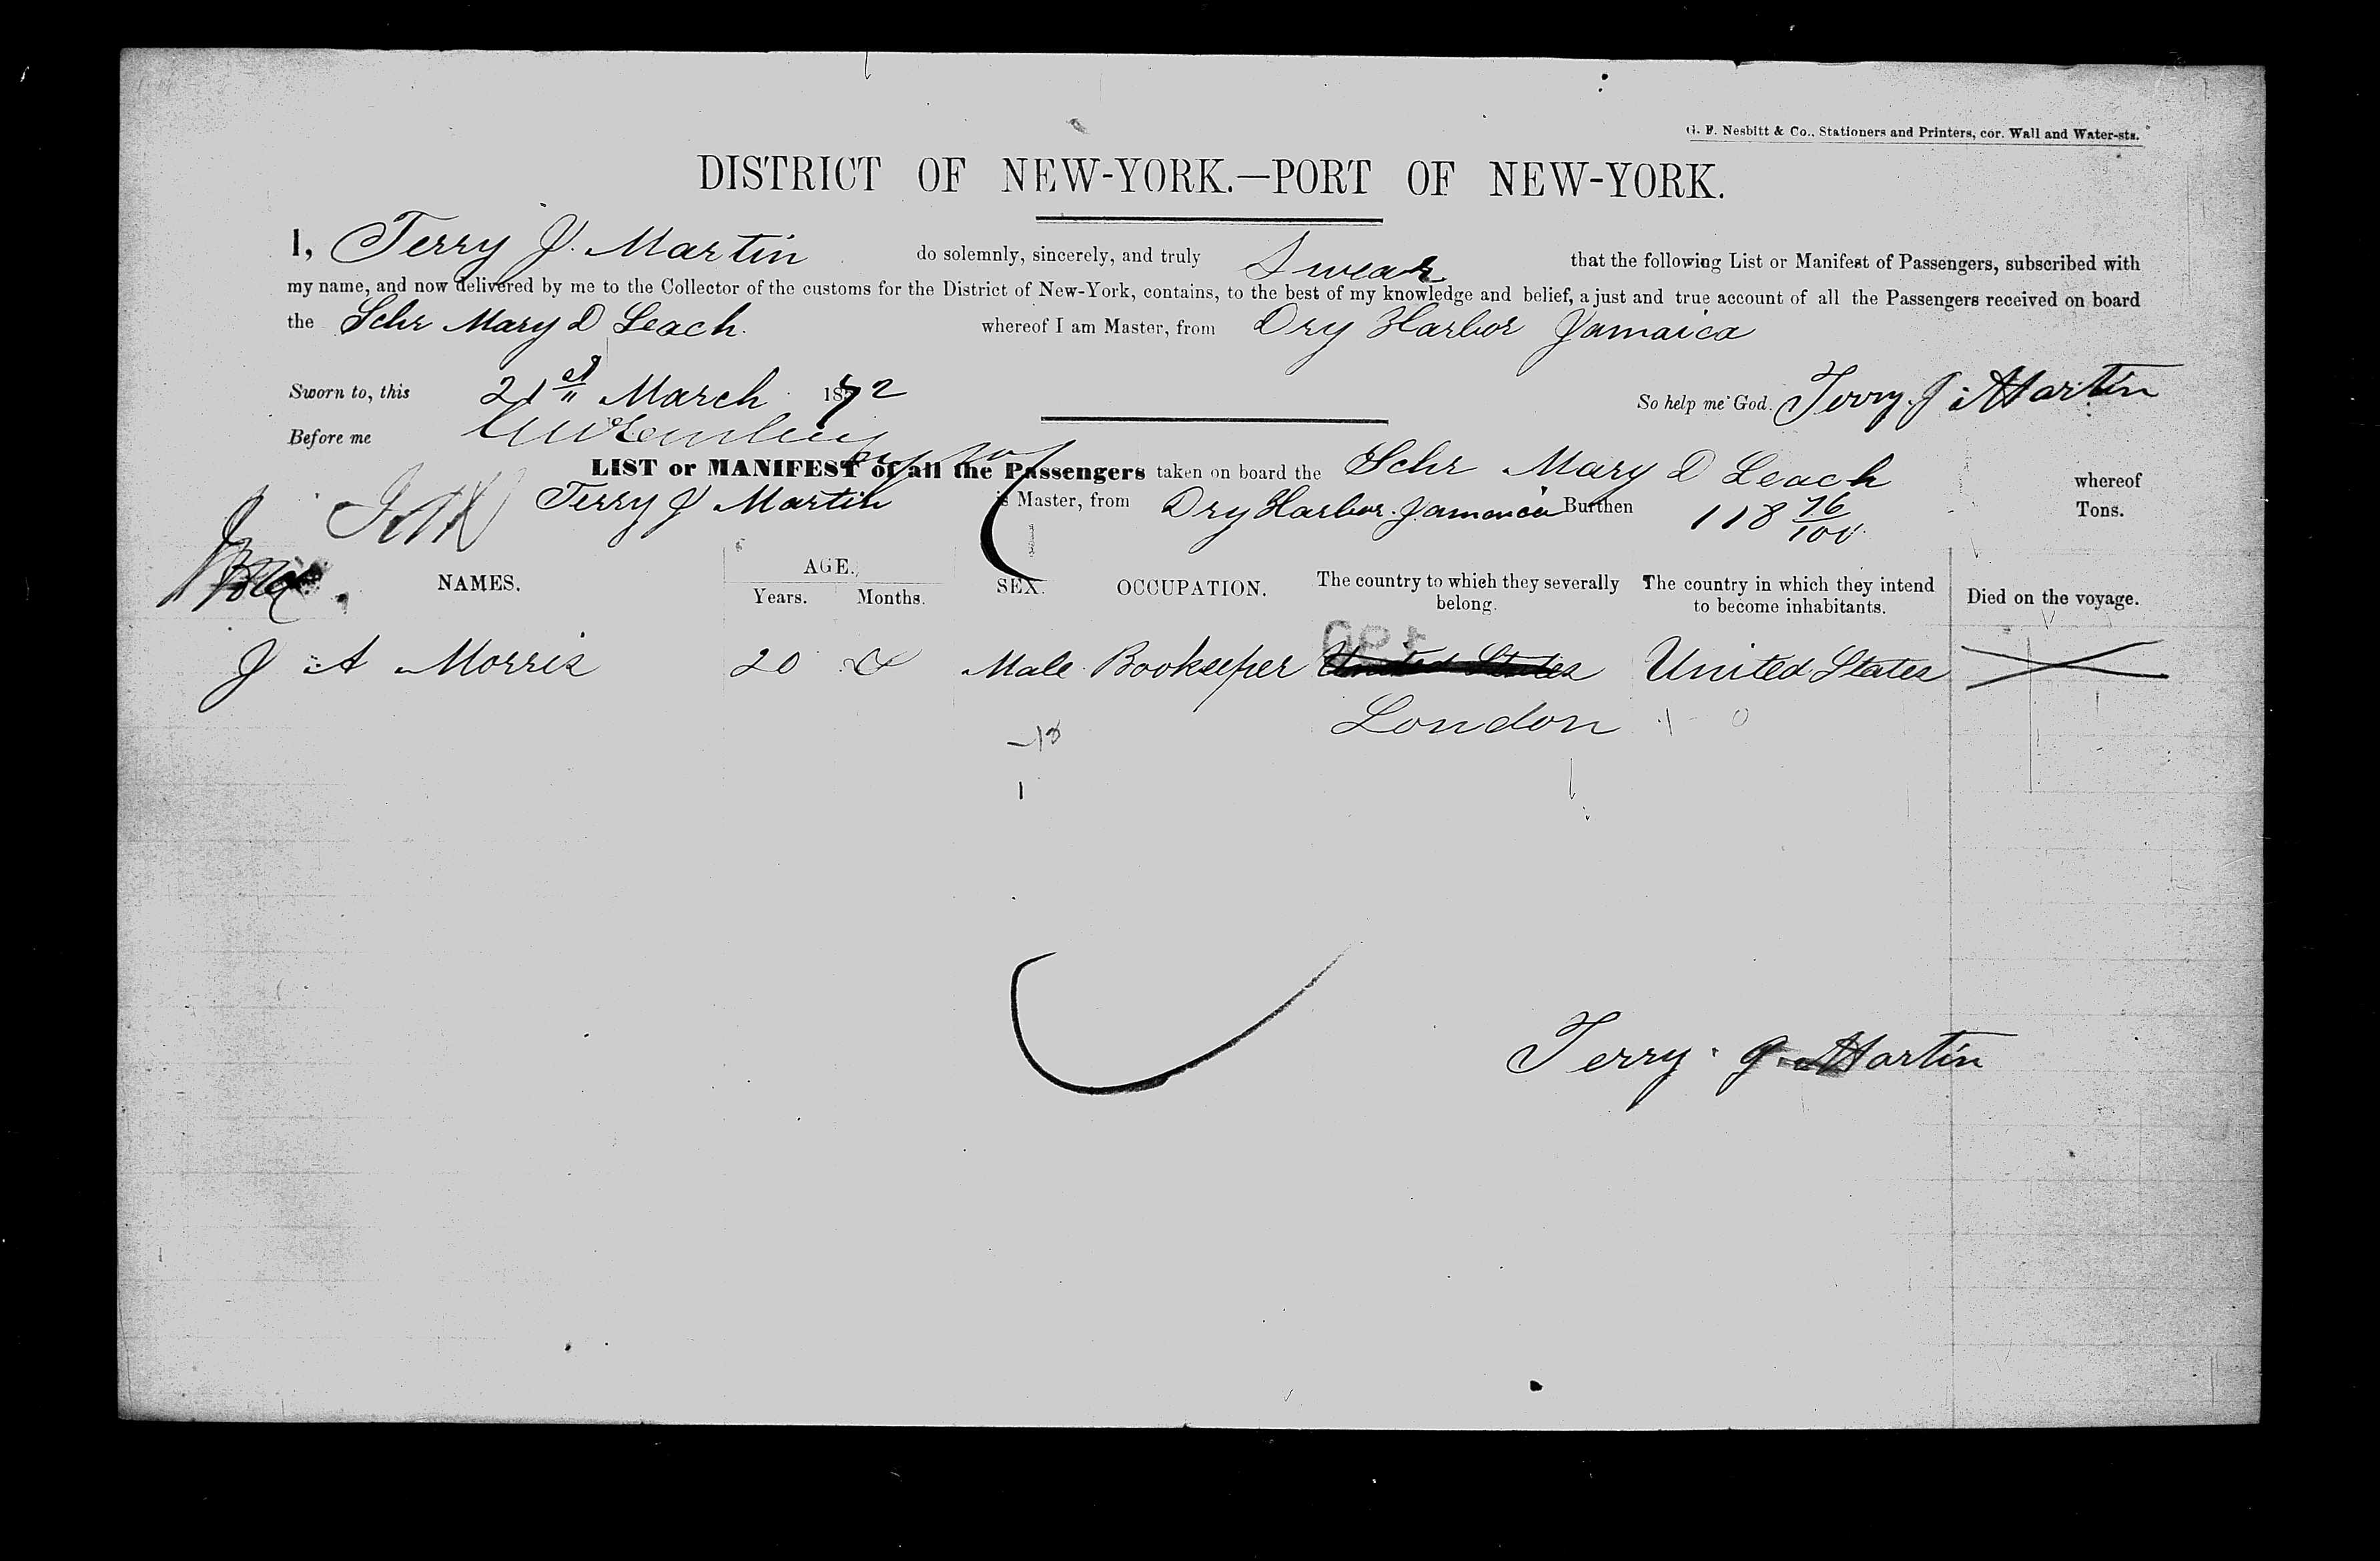 G. F. Nesbitt & Co., Stationers and Printers, cor. Wall and Water-sts.
DISTRICT OF NEW-YORK.—PORT OF NEW-YORK.
I, Terry J. Martin do solemnly, sincerely, and truly Swear that the following List or Manifest of Passengers, subscribed with
my name, and now delivered by me to the Collector of the customs for the District of New-York, contains, to the best of my knowledge and belief, a just and true account of all the Passengers received on board
the Schr Mary D Leach. whereof I am Master, from Dry Harbor Jamaica
Sworn to, this 21st March 1872 So help me God. Terry J Martin
Before me
LIST or MANIFEST of all the Passengers taken on board the Schr Mary D Leach whereof
Terry J Martin is Master, from Dry Harbor Jamaica Burthen 118 76/100 Tons.
NAMES. AGE. Years. Months. SEX. OCCUPATION. The country to which they severally belong. The country in which they intend to become inhabitants. Died on the voyage.
J A Morris 20 Male Bookeeper United States United States
London
Terry J Martin